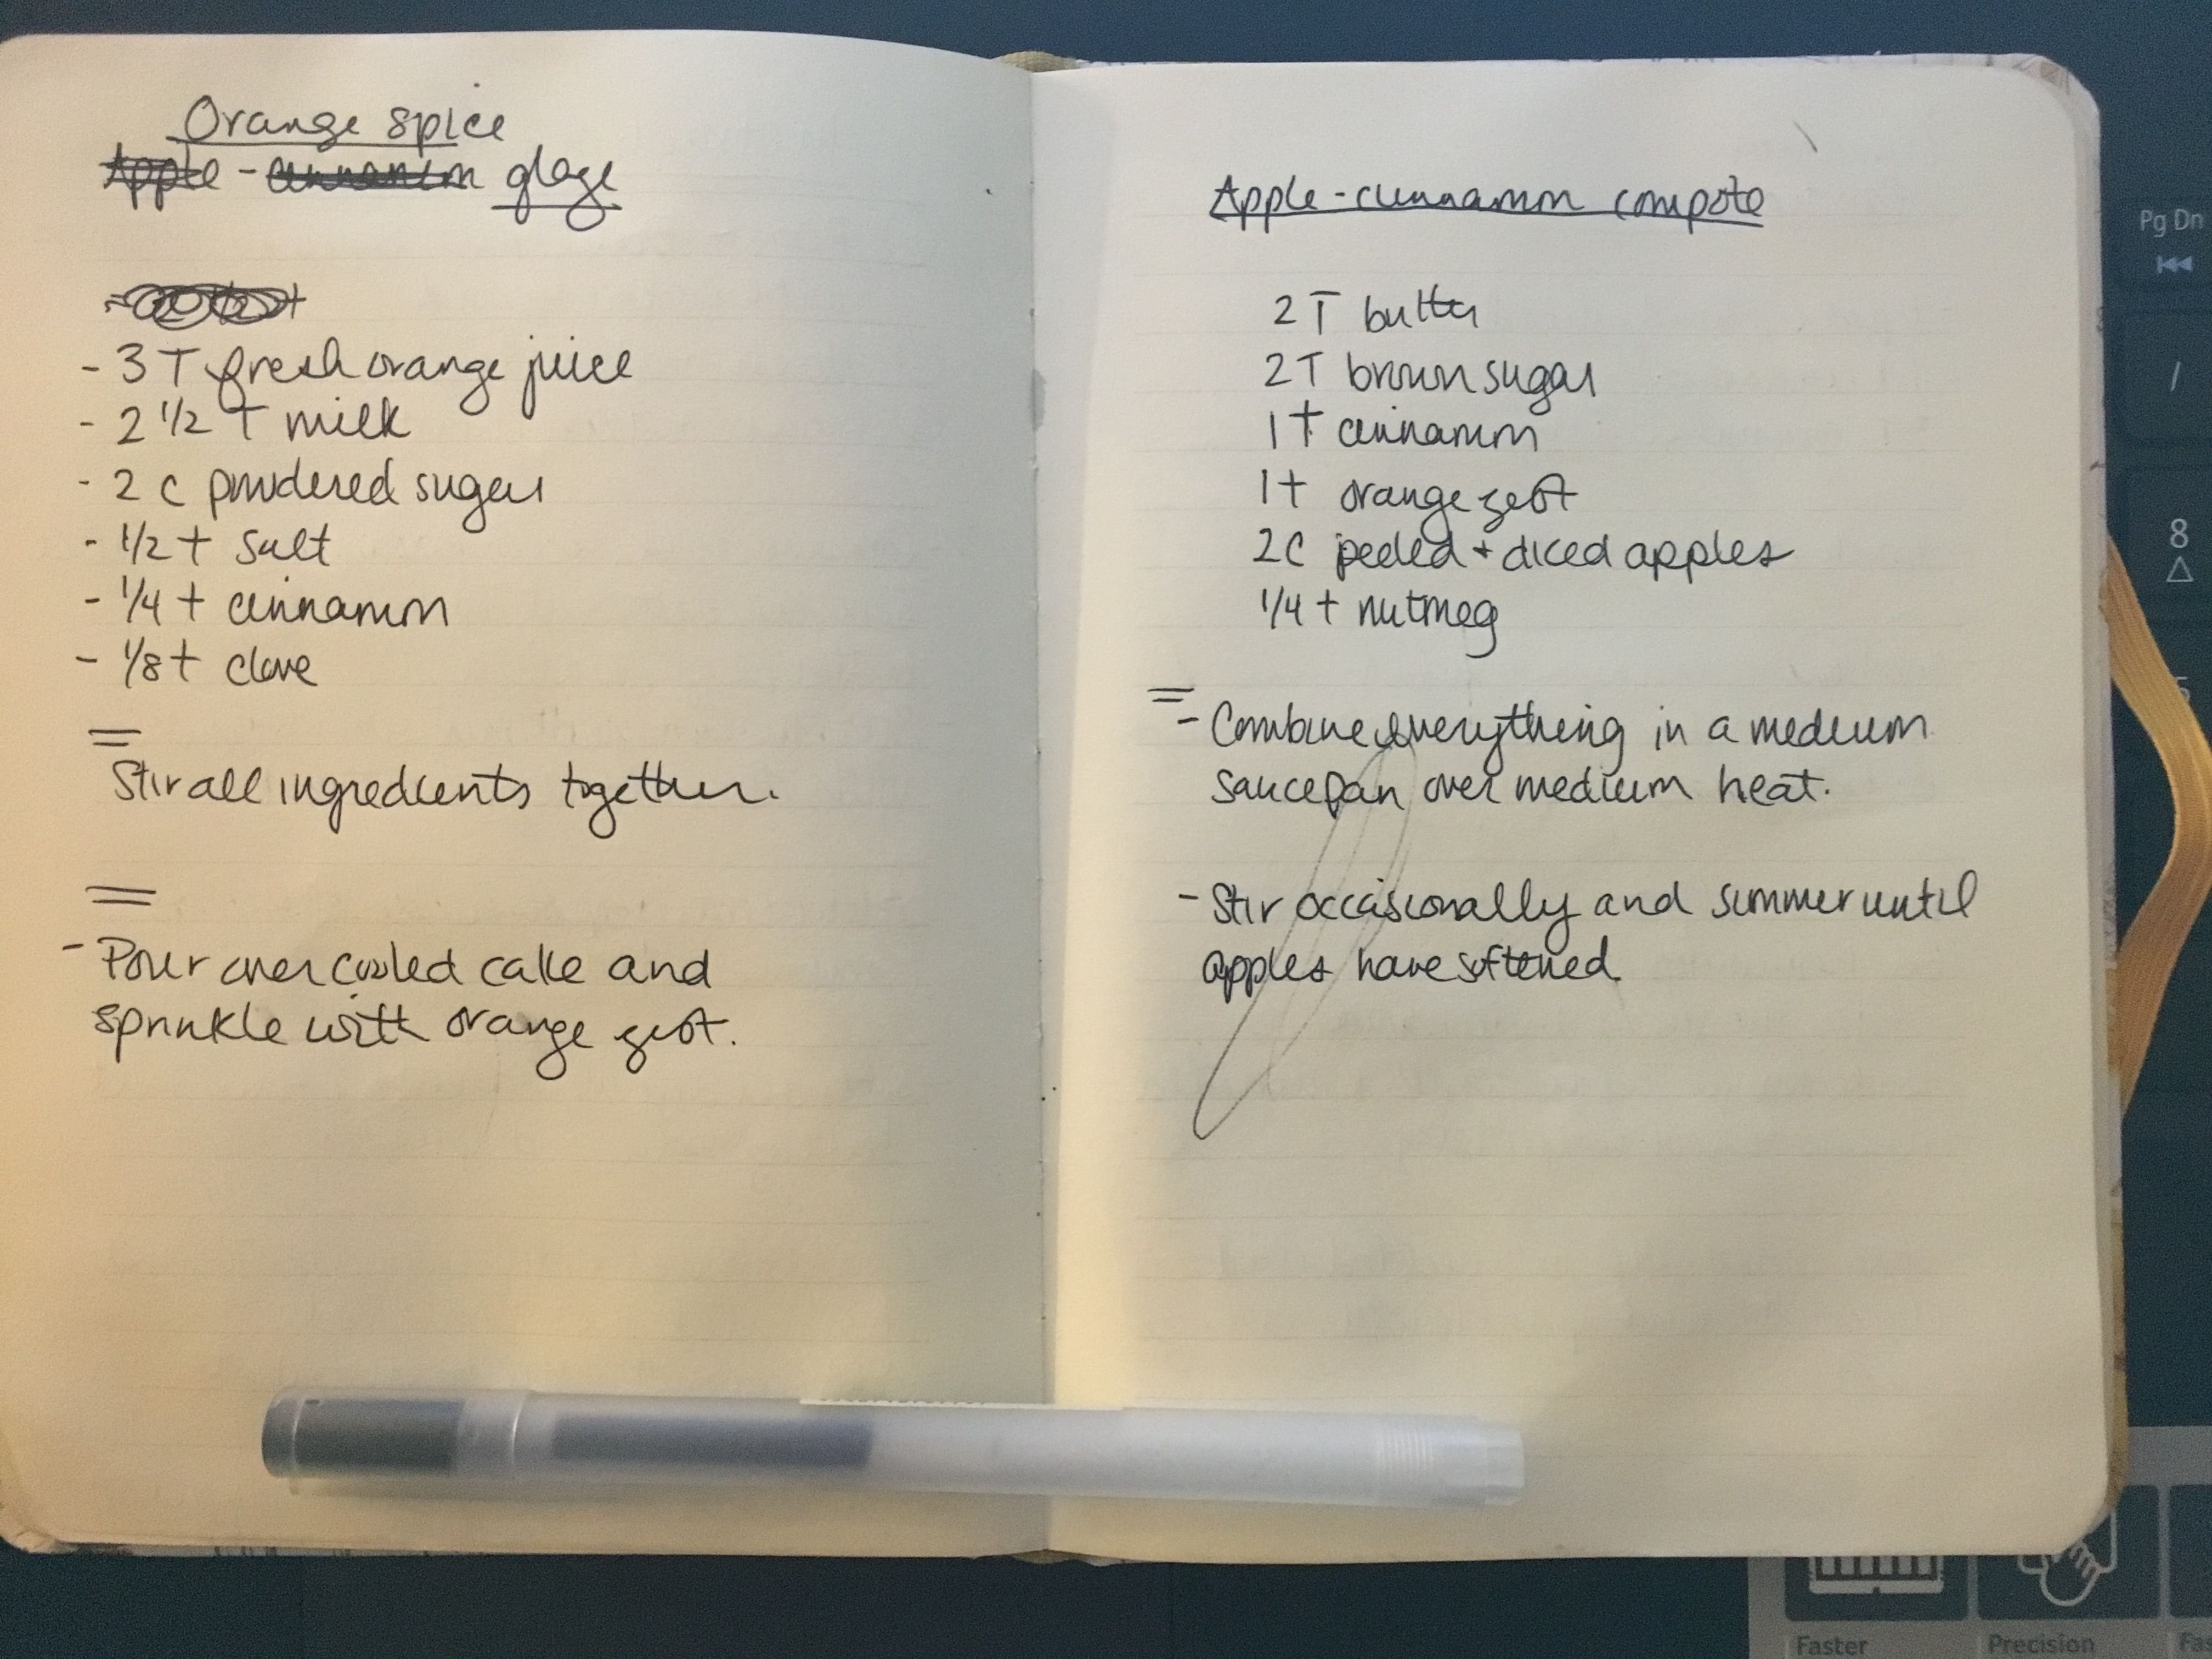 Orange spice
Apple - cinnamon glaze
- 3 T fresh orange juice
- 2 1/2 T milk
- 2 c powdered sugar
- 1/2 t salt
- 1/4 t cinnamon
- 1/8 t clove
Stir all ingredients together.
- Pour over cooled cake and
sprinkle with orange zest.
Apple-cinnamon compote
2 T butter
2 T brown sugar
1 t cinnamon
1 t orange zest
2C peeled + diced apples
1/4 t nutmeg
- Combine everything in a medium
saucepan over medium heat.
- Stir occasionally and simmer until
apples have softened.
Pg Dn
/
8
5
Faster
Precision